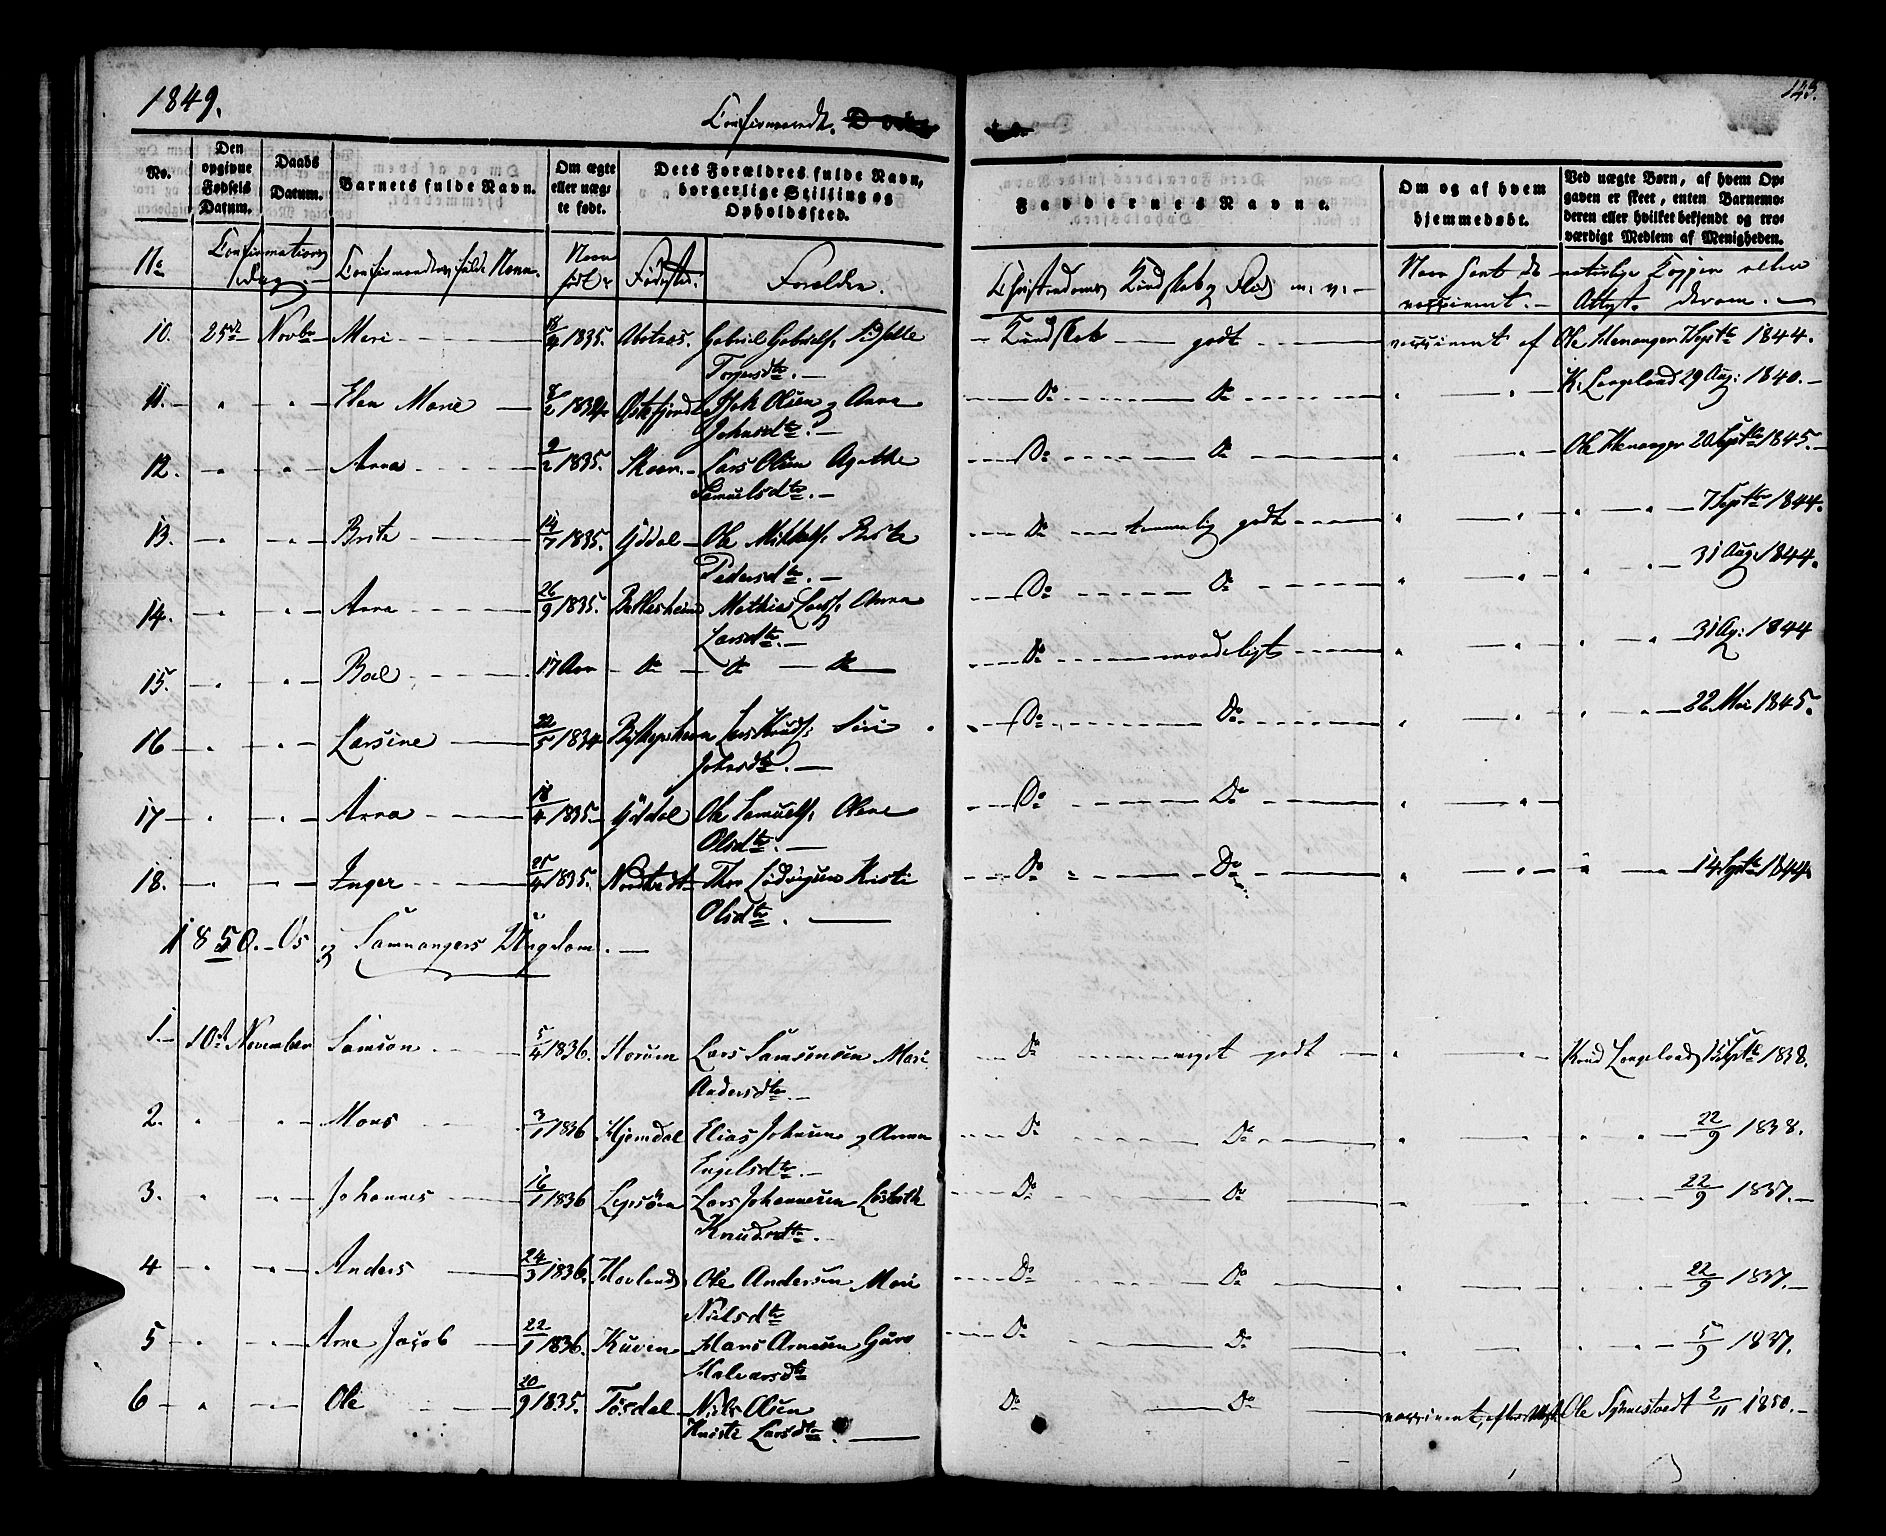 1849.
Confirmerede. Døbte
143.
No.
Den opgivne Fødsels Datum.
Daabs Datum.
Barnets fulde Navn.
Om ægte eller uægte født.
Dets Forældres fulde Navn, borgerlige Stilling og Opholdssted.
Faddernes Navne.
Om og af hvem hjemmedøbt.
Ved uægte Børn, af hvem Opgaven er skeet, enten Barnemoderen eller hvilket bekjendt og troværdigt Medlem af Menigheden.
No Confirmations dag. Confirmandens fulde Navn. Naar født Fødested. Forældre. Christendoms Kundskab og Flid m. v. Naar samt de naturlige Kopper eller
vaccineret. Attest derom.
10. 25de Novbr Mari 18/4 1835. Gabriel Gabrielsen
Kundskab godt vaccineret af Ole Hevanger 7 Septbr 1844.
Torgersdtr.
11. Elen Marie 8/2 1834 Johannesen Olsen og Anna Do Do K. Langeland 29 Aug: 1840.
Johnsdtr.
12. Anna 9/2 1835. Skeen Lars Olsen Agathe Do Do Ole Hevanger 20 Septbr 1845.
Samuelsdtr.
13. Brita 14/7 1835. Gjødal Ole Mikkels. Brita Do temmelig godt 7 Septbr 1844.
Pedersdtr.
14. Anna 26/9 1835. Mathias Lars. Anna Do Do 31 Aug: 1844.
Larsdtr.
15. Boel 17 Aar Do Do Do Do maadeligt 31 Ag: 1844
16 Larsine 22/5 1834 Lars Knuds. Siri Do Do 22 Mai 1845.
Johnsdtr.
17 Anna 18/4 1835 Gjødal Ole Samuels. Do Do
Olsdtr.
18. Inger 25/4 1835. Thor Kisti Do Do 14 Septbr 1844
Olsdtr.
1850. Os og Samnangers Ungdom.
1. 10de November Samson 5/4 1836. Lars Samsonsen Mari Do meget godt Knud Langeland Septbr 1838.
Andersdtr.
2. Mons 3/1 1836 Hjemdal Elias Johnsen og Anna Do Do 22/9 1838.
Engelsdtr.
3. Johannes 16/1 1836 Lepsøen Lars Johannesen Lisbeth Do Do 22/9 1837.
Knudsdtr.
4 Anders 24/3 1836. Hovland Ole Andersen Mari Do Do 22/9 1837.
Nielsdtr
5 Arne Jacob 22/1 1836. Kuven Hans Arnesen Guro Do Do 5/9 1837.
Halvarsdtr
6 Ole 20/9 1835. Tøsdal Niels Olsen Do Do vaccineret, efter Attest Ole Synnestvedt 2/11 1850.
Kriste Larsdtr.